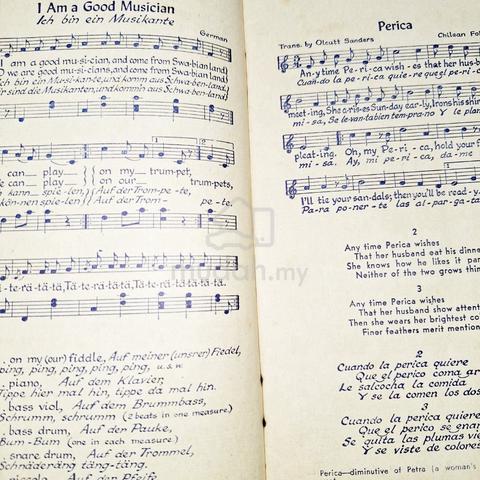 I Am a Good Musician
Ich bin ein Musikante
German
I am a good mu-si-cian, and come from Swa-bian land,
O we are good mu-si-cians, and come from Swa-bian land,
Ich bin ein Musikante, und komm aus Schwa-ben-land,
sind die Musikanten, und komm'n aus Schwa-ben-land,
can play on my trum-pet,
can play on our trum-pets,
kann spie-len, Auf der Trom-pe-te,
können spie-len, Auf der Trom- pe-te.
-te-rä-tä-tä, Tä-te-rä-tä-tä, Tä-te-rä-tä-tä-tä.
. on my (our) fiddle, Auf meiner (unsrer) Fiedel,
ping, ping, ping, ping, ping, u.s.w.
. piano, Auf dem Klavier,
Tippe hier mal hin, tippe da mal hin.
. bass viol, Auf dem Brummbass,
Schrumm, schrumm (2 beats in one measure)
. bass drum, Auf der Pauke,
Bum-Bum (one in each measure)
. snare drum, Auf der Trommel,
Schnäderäng täng-täng.
. piccolo, Auf der Pfeife
Perica
Trans. by Olcutt Sanders
Chilean Fol
An-y time Pe-ri-ca wish-es that her husb
Cuan-do la pe-ri-ca quie-re que el pe-ri-c
meet-ing, She a-ris-es Sun-day ear-ly, Irons his shir
mi-sa, Se le-van-ta bien tem-pra-no Y le plan
pleat-ing. Oh, my Pe-ri-ca, hold your f
mi-sa. Ay, mi pe-ri-ca, da-me
I'll tie your san-dals; then you'll be read-y.
Pa-ra po-ner-te las al-par-ga-ta
2
Any time Perica wishes
That her husband eat his dinne
She knows how he likes it par
Neither of the two grows thin
3
Any time Perica wishes
That her husband show attent
Then she wears her brightest co
Finer feathers merit mention
2
Cuando la perica quiere
Que el perico coma ar
Le salcocha la comida
Y se la comen los dos
3
Cuando la perica quiere
Que el perico se enar
Se quita las plumas vie
Y se viste de colores
Perica—diminutive of Petra (a woman's
mudah.my